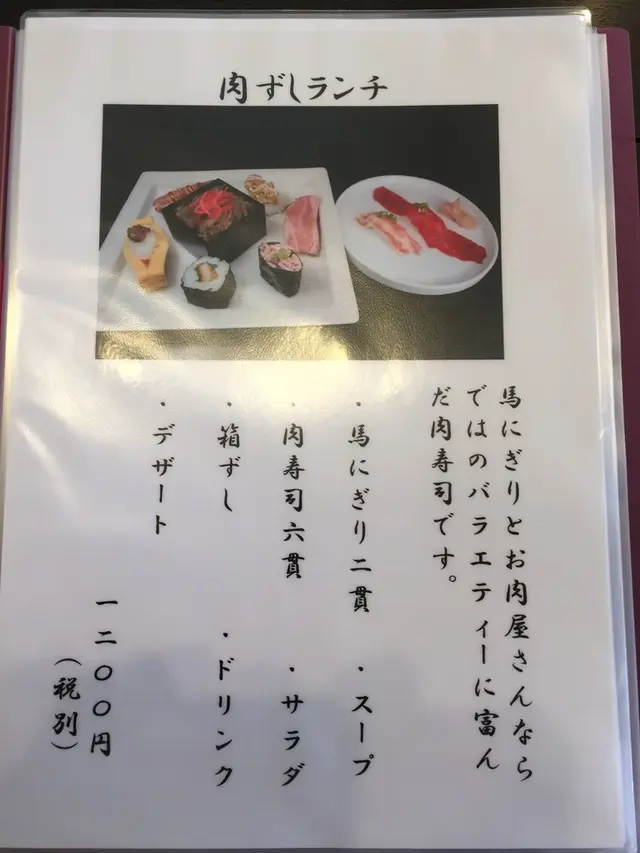 肉ずしランチ
馬にぎりとお肉屋さんなら
ではのバラエティーに富ん
だ肉寿司です。
・馬にぎり二貫
・スープ
・肉寿司六貫
・サラダ
・箱ずし
・ドリンク
・デザート
一二〇〇円
（税別）